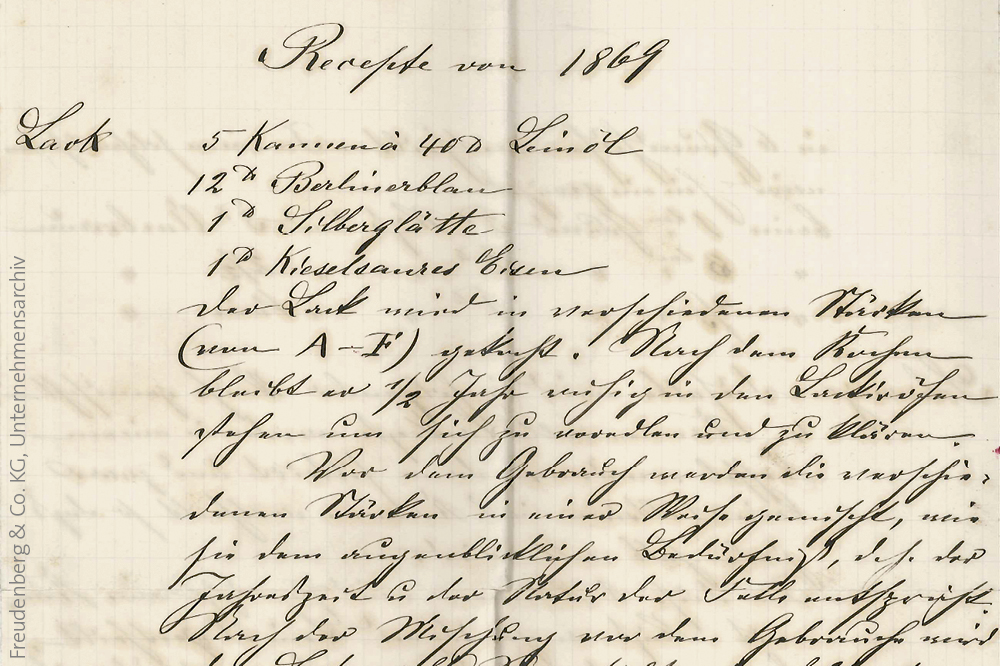 Recepte von 1869
Lack 5 Kannen à 40 ₰ Leinöl
12 ₰ Berlinerblau
1 ₰ Silberglätte
1 ₰ Kieselsaures Eisen
Der Lack wird in verschiedenen Stärken
(von A–F) gekocht. Nach dem Kochen
bleibt er 1/2 Jahr ruhig in den
stehen um sich zu veredlen und zu klären.
Vor dem Gebrauch werden die verschie-
denen Stärken in einer Weise gemischt, wie
sie dem augenblicklichen Bedürfniß, d. h. der
Jahreszeit u der Natur der Felle entspricht.
Nach der Mischung vor dem Gebrauche wird
Freudenberg & Co. KG, Unternehmensarchiv